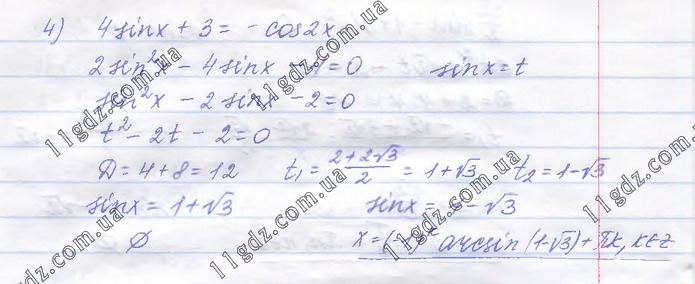 4) 4sinx + 3 = - cos2x
2sin²x - 4sinx - 4 = 0 sinx = t
sin²x - 2sinx - 2 = 0
t² - 2t - 2 = 0
D = 4 + 8 = 12 t₁ = (2+2√3)/2 = 1+√3 t₂ = 1-√3
sinx = 1+√3 sinx = 1-√3
∅ x = (-1)ᵏ arcsin(1-√3) + πk, k∈Z
11gdz.com.ua
11gdz.com.ua
11gdz.com.ua
11gdz.com.ua
11gdz.com.ua
11gdz.com.ua